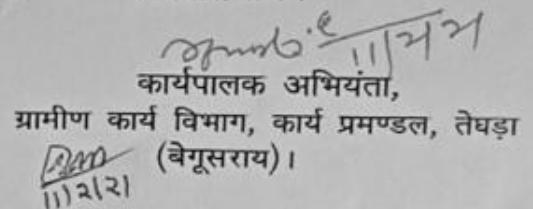 कार्यपालक अभियंता,
ग्रामीण कार्य विभाग, कार्य प्रमण्डल, तेघड़ा
(बेगूसराय)।
11/2/21